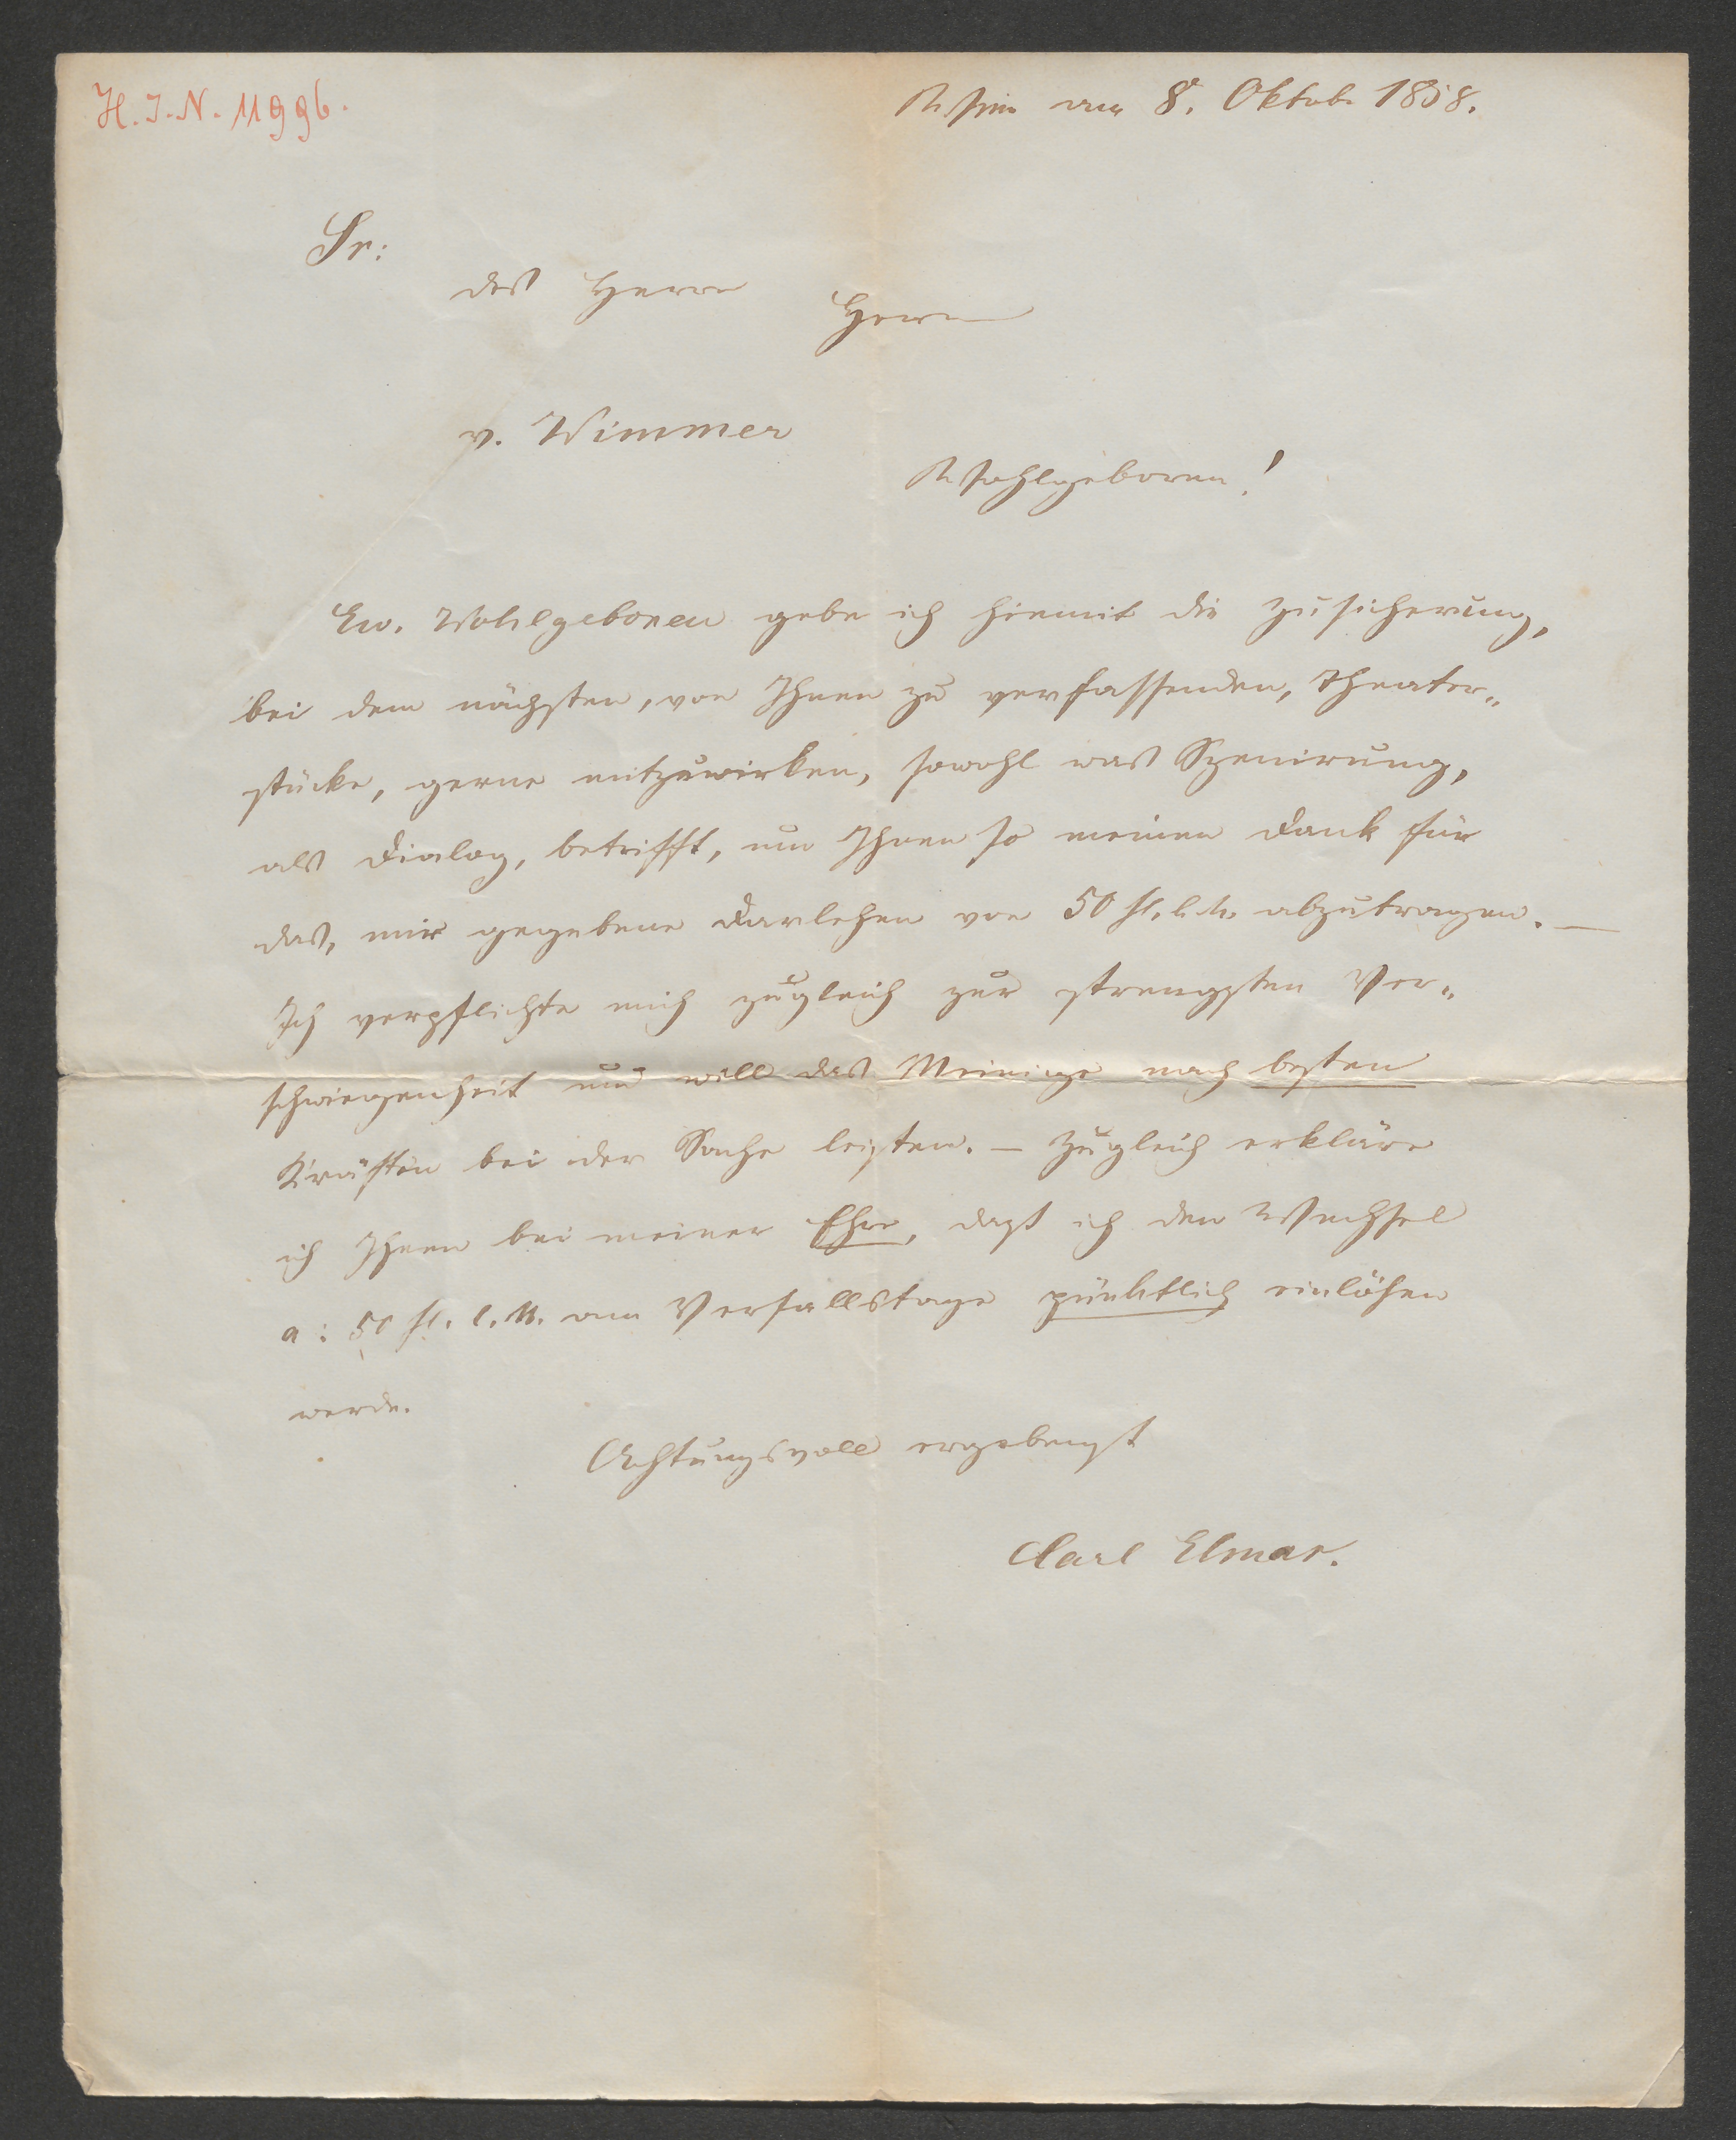 H.I.N. 11996.
Wien am 8t. Oktob. 1858.
Sr:
des Herrn
Herrn
v. Wimmer
Wohlgeboren!
Ew. Wohlgeboren gebe ich hiemit die Zusicherung,
bei dem nächsten, von Ihnen zu verfassenden, Theater„
stücke, gerne mitzuwirken, sowohl was Szenirung,
als Dialog, betrifft, um Ihnen so meinen Dank für
das, mir gegebene Darlehen von 50 fl. C.M. abzutragen. —
Ich verpflichte mich zugleich zur strengsten Ver„
schwiegenheit und will das Meinige nach besten
Kräften bei der Sache leisten. — Zugleich erkläre
ich Ihnen bei meiner Ehre, daß ich den Wechsel
a: 50 fl. C.M. am Verfallstage pünktlich einlösen
werde.
Achtungsvoll ergebenst
Carl Elmar.